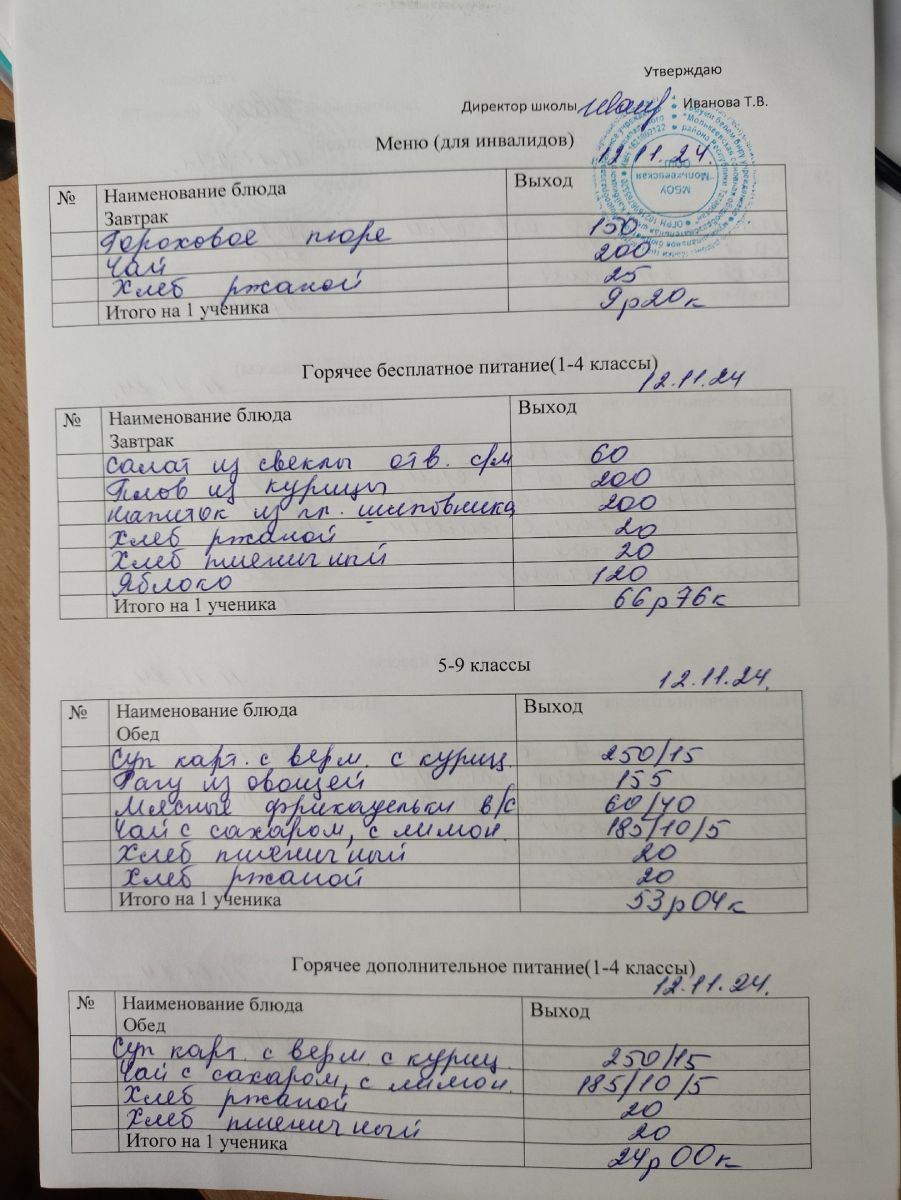 Утверждаю
Директор школы Иванова Т.В.
Меню (для инвалидов) 12.11.24.
№ Наименование блюда Выход
Завтрак
Гороховое пюре 150
Чай 200
Хлеб ржаной 25
Итого на 1 ученика 9р20к
Горячее бесплатное питание(1-4 классы)
12.11.24
№ Наименование блюда Выход
Завтрак
Салат из свеклы отв. с/м 60
Плов из курицы 200
Напиток из пл. шиповника 200
Хлеб ржаной 20
Хлеб пшеничный 20
Яблоко 120
Итого на 1 ученика 66р76к
5-9 классы
12.11.24.
№ Наименование блюда Выход
Обед
Суп карт. с верм. с куриц. 250/15
Рагу из овощей 155
Мясные фрикадельки в/с 60/40
Чай с сахаром, с лимон. 185/10/5
Хлеб пшеничный 20
Хлеб ржаной 20
Итого на 1 ученика 53р04к
Горячее дополнительное питание(1-4 классы)
12.11.24.
№ Наименование блюда Выход
Обед
Суп карт. с верм. с куриц. 250/15
Чай с сахаром, с лимон. 185/10/5
Хлеб ржаной 20
Хлеб пшеничный 20
Итого на 1 ученика 24р00к
МБОУ
"Молькеевская
ООШ"